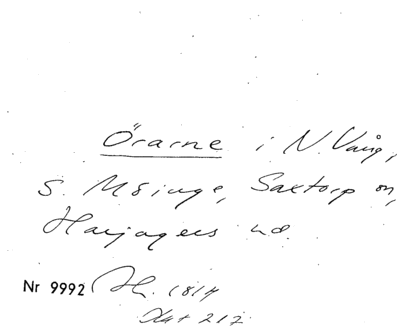 Örarne i N. Vång,
S. Möinge, Saxtorp sn,
Harjagers hd.
Nr 9992 Th. 1814
Akt 217